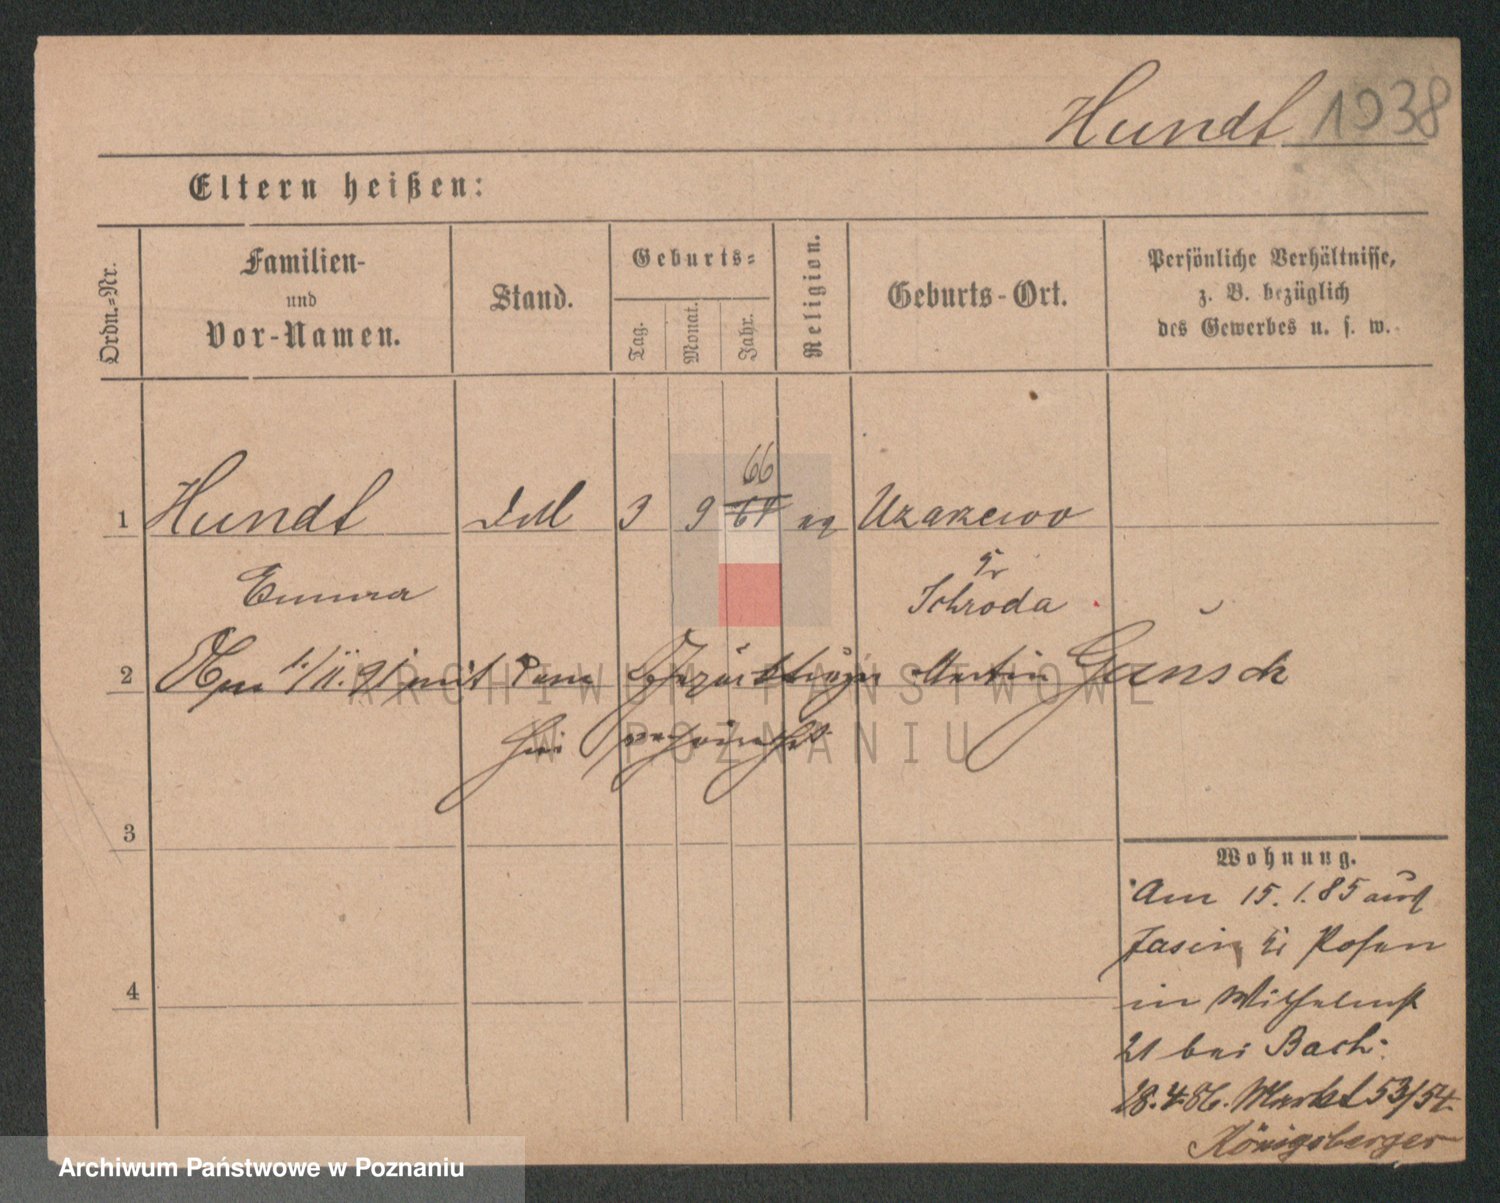 Hundt 1938
Eltern heißen:
Ordn.=Nr.
Familien-
und
Vor-Namen.
Stand.
Geburts=
Tag.
Monat.
Jahr.
Religion.
Geburts-Ort.
Persönliche Verhältnisse,
z. B. bezüglich
des Gewerbes u. s. w.
66
1 Hundt 3 9 64
Emma
Kr
Schroda
2 Am 1./11. 91 mit dem Martin Gänsch
hier
ARCHIWUM PAŃSTWOWE
W POZNANIU
3
4
Wohnung.
Am 15. 1. 85 aus
Jasin Posen
in Wilhelmst
21 bei Bach.
28. 4. 86. Markt 53/54.
Königsberger
Archiwum Państwowe w Poznaniu